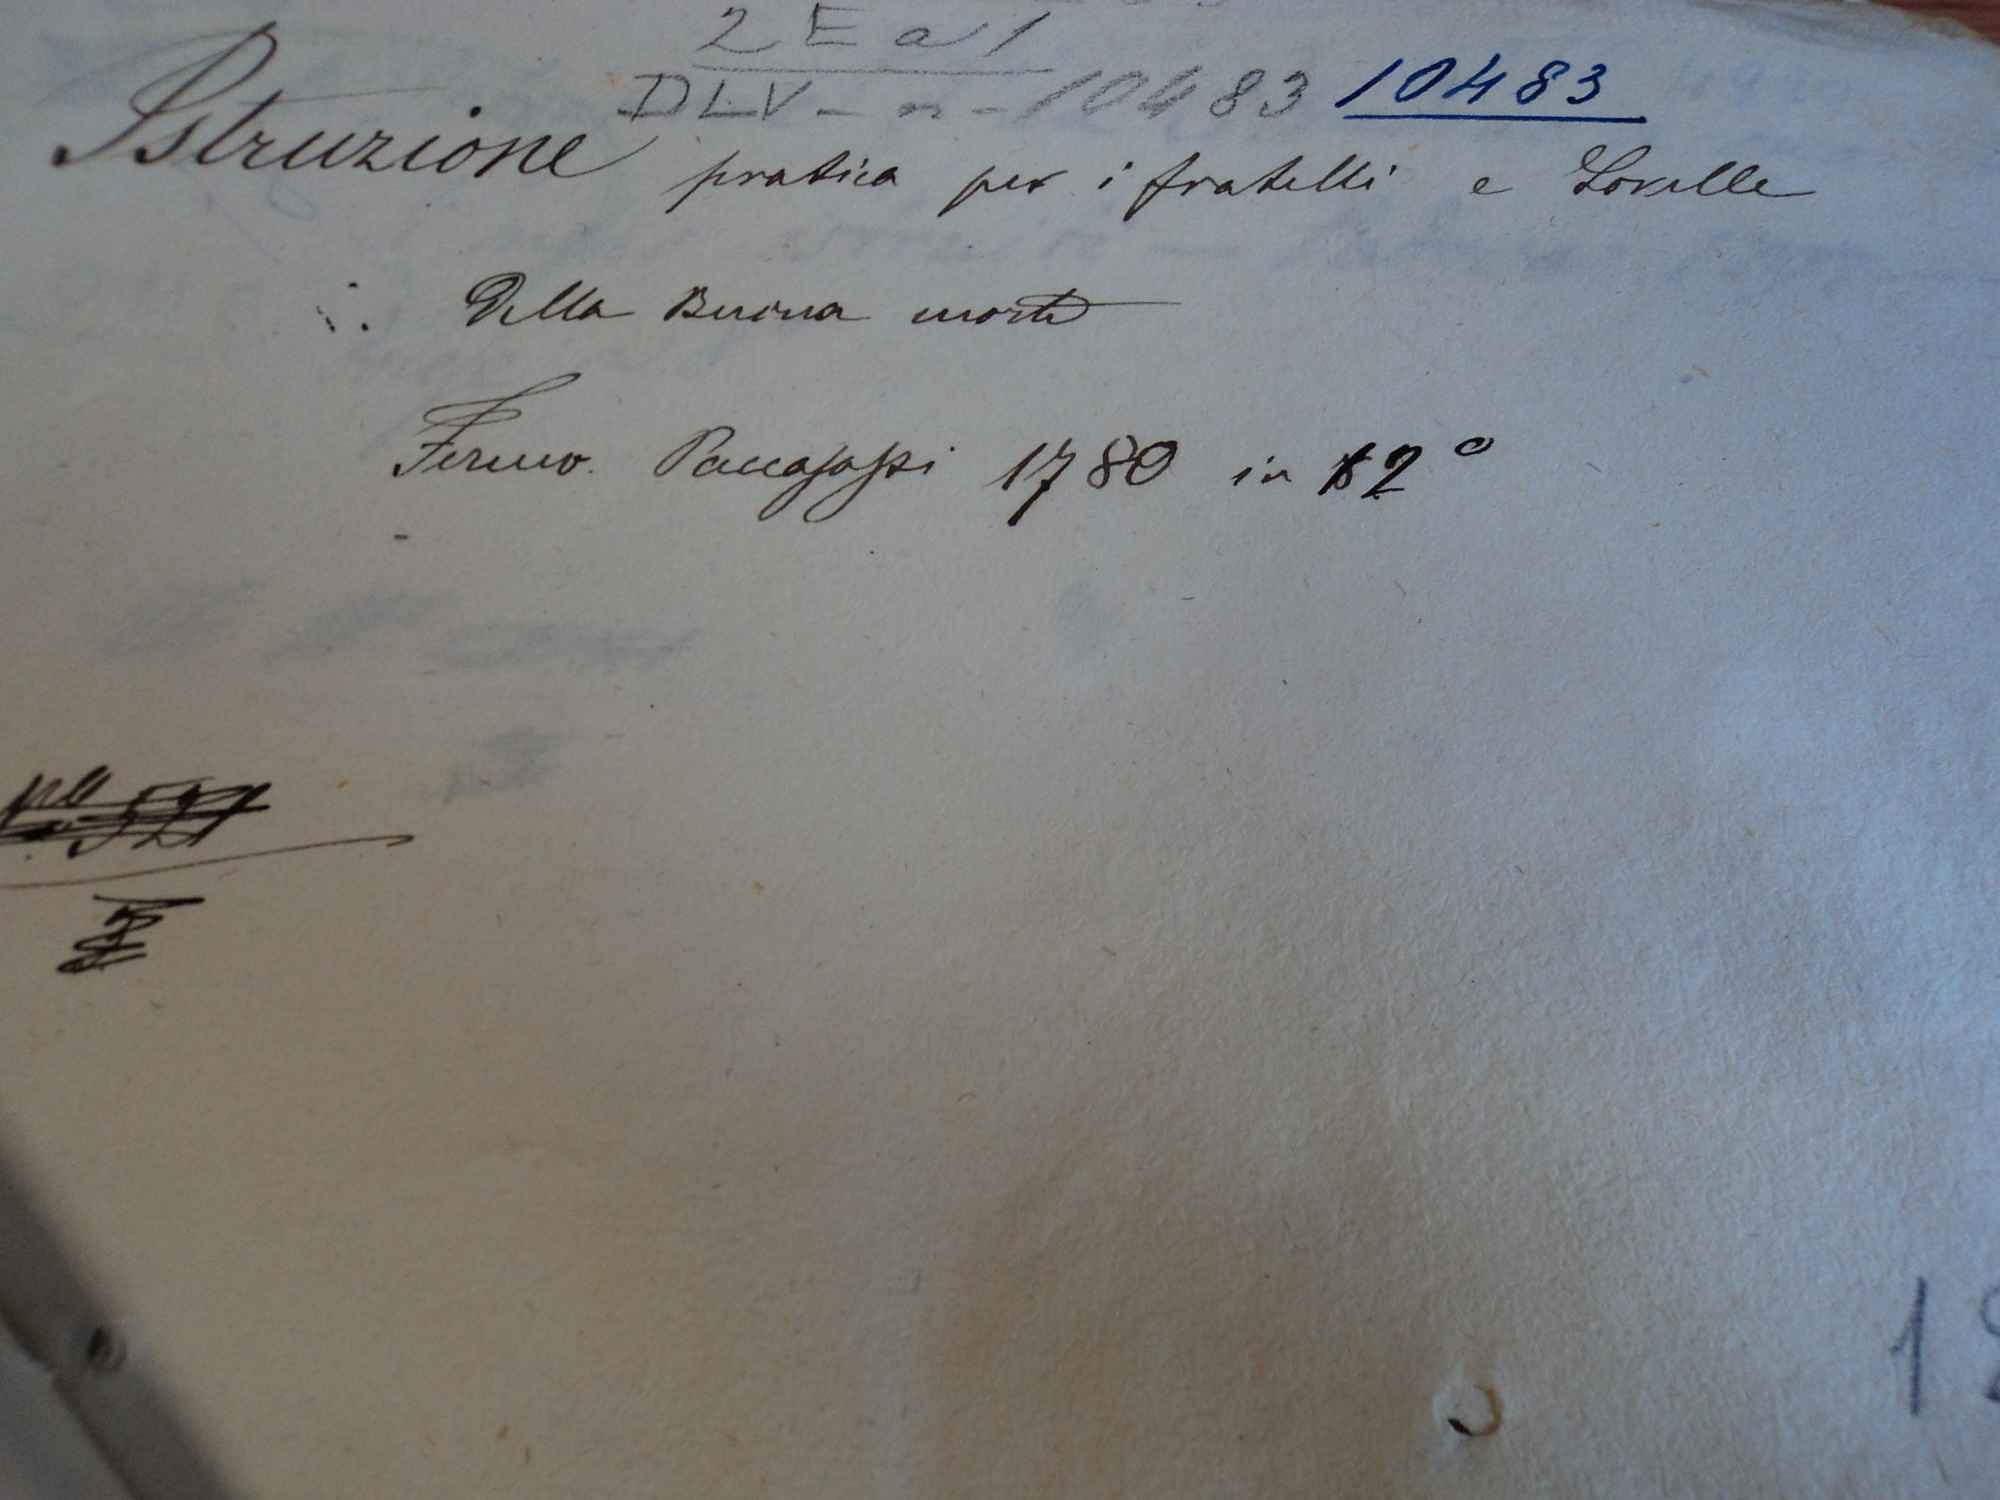 2 E a 1
DLV - n - 10483 10483
Istruzione pratica per i fratelli e Sorelle
Della Buona morte
Fermo. Paccasassi 1780 in 12°
no 521